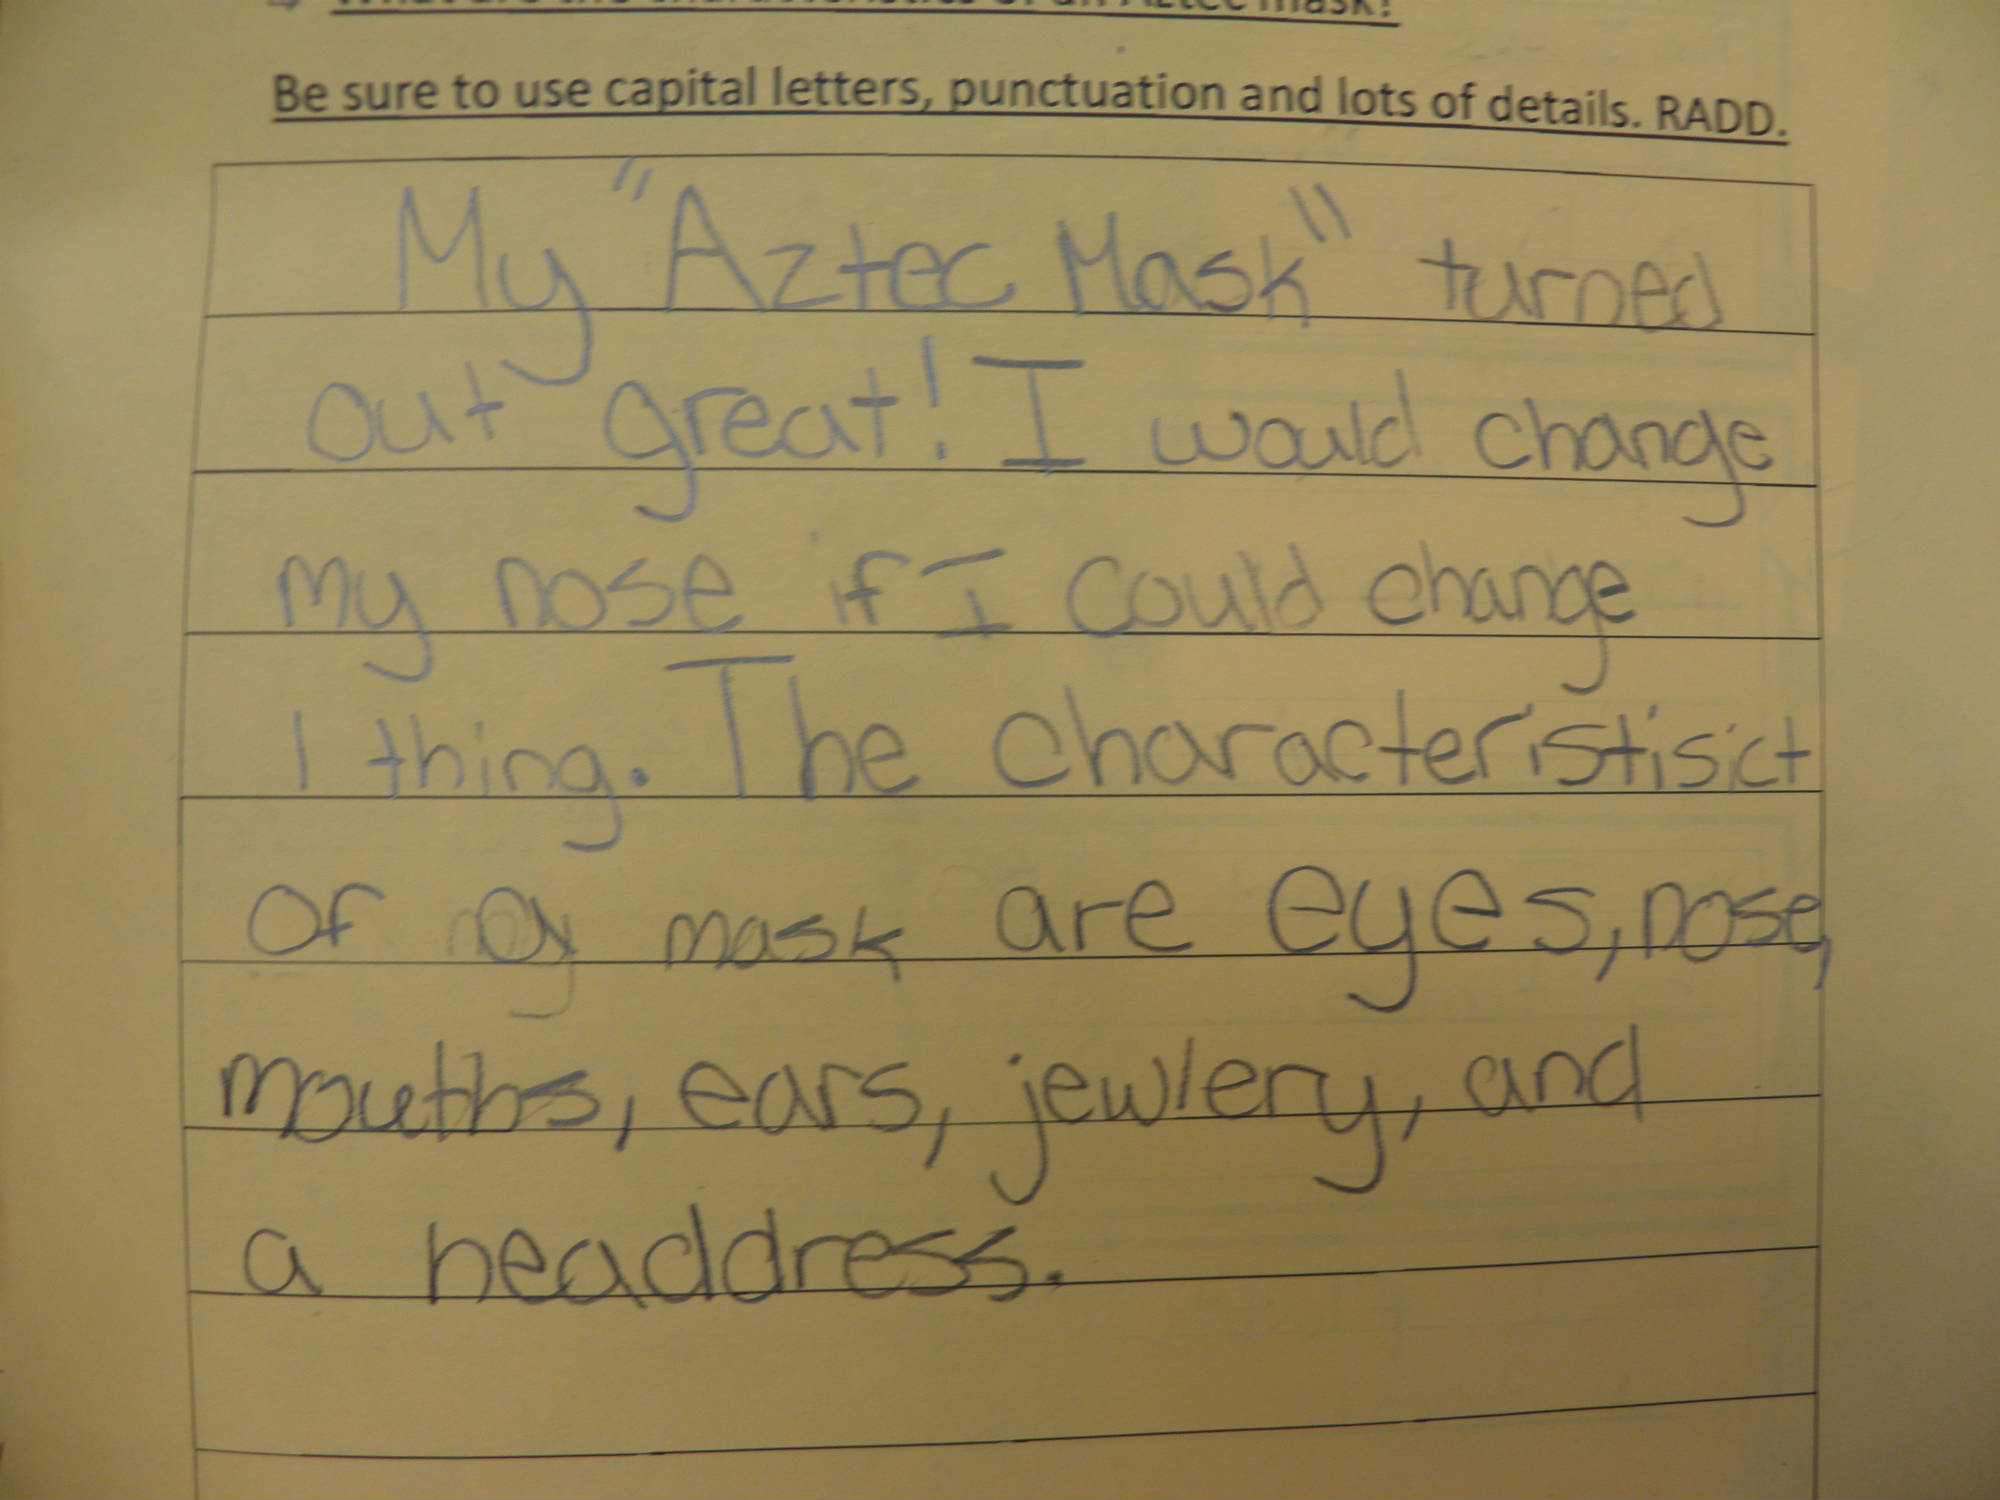 What are the characteristics of an Aztec mask?
Be sure to use capital letters, punctuation and lots of details. RADD.
My "Aztec Mask" turned
out great! I would change
my nose if I could change
1 thing. The characteristisict
of my mask are eyes, nose,
mouths, ears, jewlery, and
a headdress.